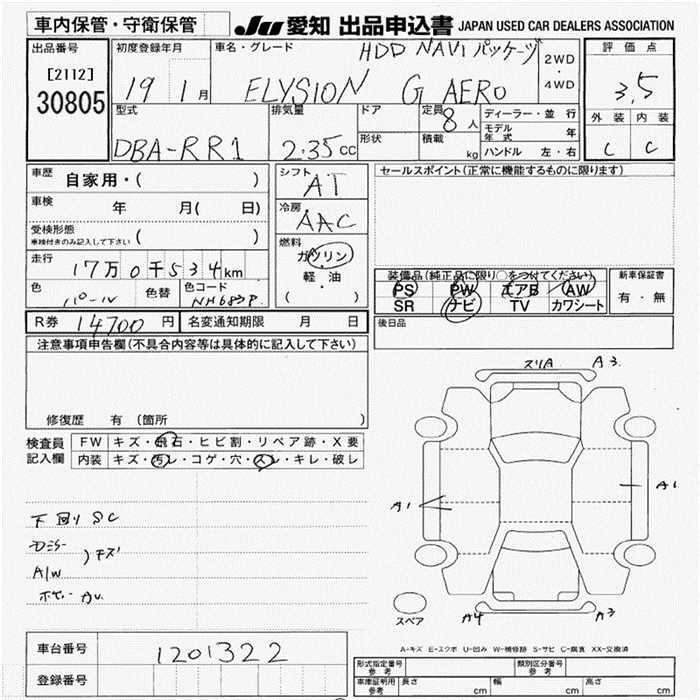 車内保管・守衛保管
JU 愛知 出品申込書 JAPAN USED CAR DEALERS ASSOCIATION
出品番号 初度登録年月 車名・グレード HDD NAVI パッケージ 2WD・4WD 評価点
[2112]
30805 19 1月 ELYSION G AERO 3.5
型式 排気量 ドア 定員 8人 ディーラー・並行 外装 内装
DBA-RR1 2.35cc 形状 積載 kg モデル年式 年 C C
ハンドル 左・右
車歴 自家用・( ) シフト AT セールスポイント(正常に機能するものに限ります)
車検 年 月( 日) 冷房 AAC
受検形態 ( )
車検付きのみ記入して下さい
燃料 ガソリン・軽・油 ( )
走行 17万0千534km
装備品(純正品に限り○をつけてください) 新車保証書
色 パール 色替 色コード NH683P
PS PW エアB AW 有・無
SR ナビ TV カワシート
R券 14700円 名変通知期限 月 日 後日品
注意事項申告欄(不具合内容等は具体的に記入して下さい)
修復歴 有 (箇所 )
検査員記入欄 FW キズ・飛石・ヒビ割・リペア跡・X要
内装 キズ・汚レ・コゲ・穴・スレ・キレ・破レ
スリA A3
A1 A1
下回りSC
A/W
A4 A3
スペア
A-キズ E-エクボ U-凹み W-補修跡 S-サビ C-腐食 XX-交換済
車台番号 1201322
登録番号
形式指定番号 参考 類別区分番号 参考
車庫証明用 参考 長さ cm 幅 cm 高さ cm